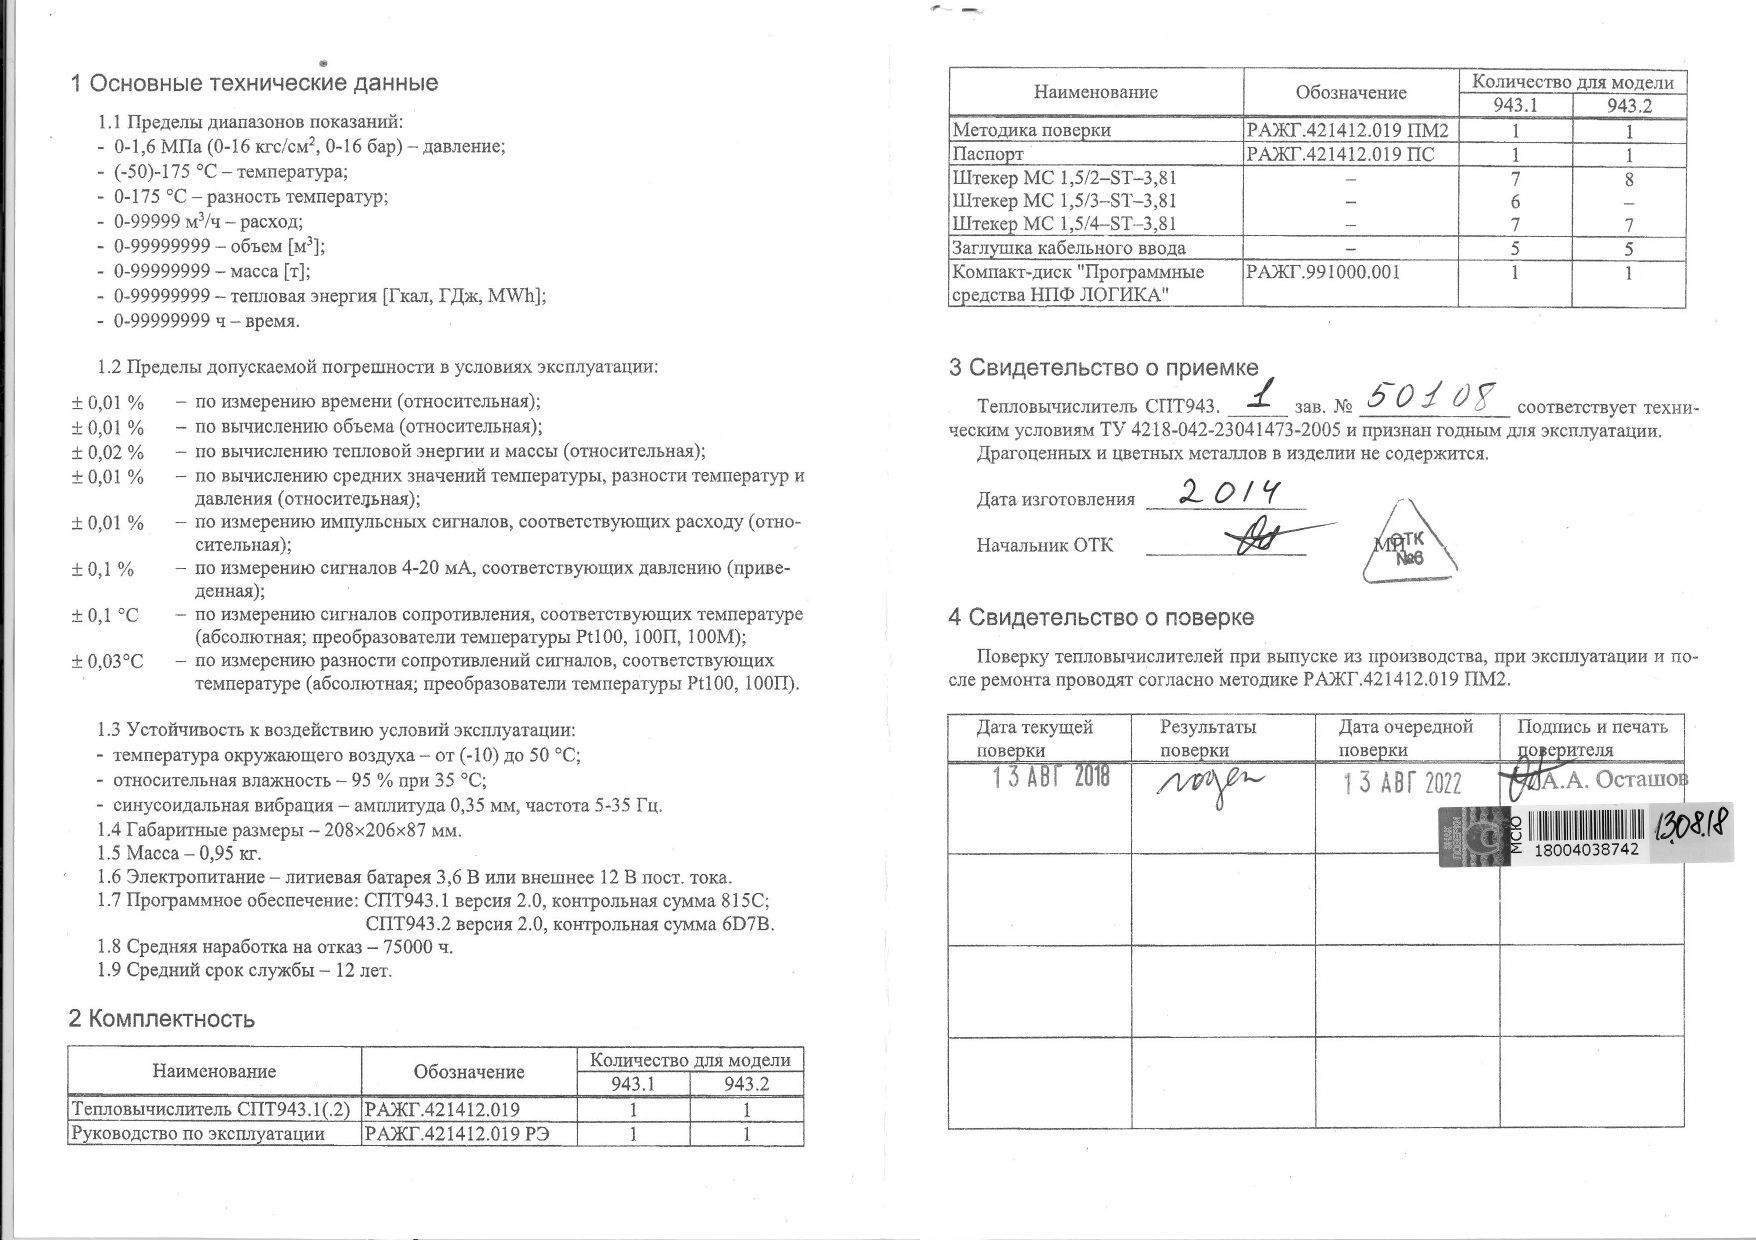 1 Основные технические данные
1.1 Пределы диапазонов показаний:
- 0-1,6 МПа (0-16 кгс/см², 0-16 бар) – давление;
- (-50)-175 °С – температура;
- 0-175 °С – разность температур;
- 0-99999 м³/ч – расход;
- 0-99999999 – объем [м³];
- 0-99999999 – масса [т];
- 0-99999999 – тепловая энергия [Гкал, ГДж, MWh];
- 0-99999999 ч – время.
1.2 Пределы допускаемой погрешности в условиях эксплуатации:
± 0,01 % – по измерению времени (относительная);
± 0,01 % – по вычислению объема (относительная);
± 0,02 % – по вычислению тепловой энергии и массы (относительная);
± 0,01 % – по вычислению средних значений температуры, разности температур и
давления (относительная);
± 0,01 % – по измерению импульсных сигналов, соответствующих расходу (отно-
сительная);
± 0,1 % – по измерению сигналов 4-20 мА, соответствующих давлению (приве-
денная);
± 0,1 °С – по измерению сигналов сопротивления, соответствующих температуре
(абсолютная; преобразователи температуры Pt100, 100П, 100М);
± 0,03°С – по измерению разности сопротивлений сигналов, соответствующих
температуре (абсолютная; преобразователи температуры Pt100, 100П).
1.3 Устойчивость к воздействию условий эксплуатации:
- температура окружающего воздуха – от (-10) до 50 °С;
- относительная влажность – 95 % при 35 °С;
- синусоидальная вибрация – амплитуда 0,35 мм, частота 5-35 Гц.
1.4 Габаритные размеры – 208×206×87 мм.
1.5 Масса – 0,95 кг.
1.6 Электропитание – литиевая батарея 3,6 В или внешнее 12 В пост. тока.
1.7 Программное обеспечение: СПТ943.1 версия 2.0, контрольная сумма 815С;
СПТ943.2 версия 2.0, контрольная сумма 6D7B.
1.8 Средняя наработка на отказ – 75000 ч.
1.9 Средний срок службы – 12 лет.
2 Комплектность
Наименование Обозначение Количество для модели
943.1 943.2
Тепловычислитель СПТ943.1(.2) РАЖГ.421412.019 1 1
Руководство по эксплуатации РАЖГ.421412.019 РЭ 1 1
Наименование Обозначение Количество для модели
943.1 943.2
Методика поверки РАЖГ.421412.019 ПМ2 1 1
Паспорт РАЖГ.421412.019 ПС 1 1
Штекер МС 1,5/2–ST–3,81 – 7 8
Штекер МС 1,5/3–ST–3,81 – 6 –
Штекер МС 1,5/4–ST–3,81 – 7 7
Заглушка кабельного ввода – 5 5
Компакт-диск "Программные РАЖГ.991000.001 1 1
средства НПФ ЛОГИКА"
3 Свидетельство о приемке
Тепловычислитель СПТ943. 1 зав. № 50108 соответствует техни-
ческим условиям ТУ 4218-042-23041473-2005 и признан годным для эксплуатации.
Драгоценных и цветных металлов в изделии не содержится.
Дата изготовления 2014
Начальник ОТК МП
ОТК
№6
4 Свидетельство о поверке
Поверку тепловычислителей при выпуске из производства, при эксплуатации и по-
сле ремонта проводят согласно методике РАЖГ.421412.019 ПМ2.
Дата текущей Результаты Дата очередной Подпись и печать
поверки поверки поверки поверителя
13 АВГ 2018 годен 13 АВГ 2022 А.А. Осташов
МСЮ 13.08.18
18004038742